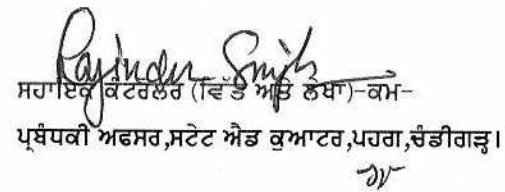 Rajinder Singh
ਸਹਾਇਕ ਕੰਟਰਲਰ (ਵਿੱਤ ਅਤੇ ਲੇਖਾ)-ਕਮ-
ਪ੍ਰਬੰਧਕੀ ਅਫਸਰ,ਸਟੇਟ ਐਡ ਕੁਆਟਰ,ਪਹਗ,ਚੰਡੀਗੜ੍ਹ।